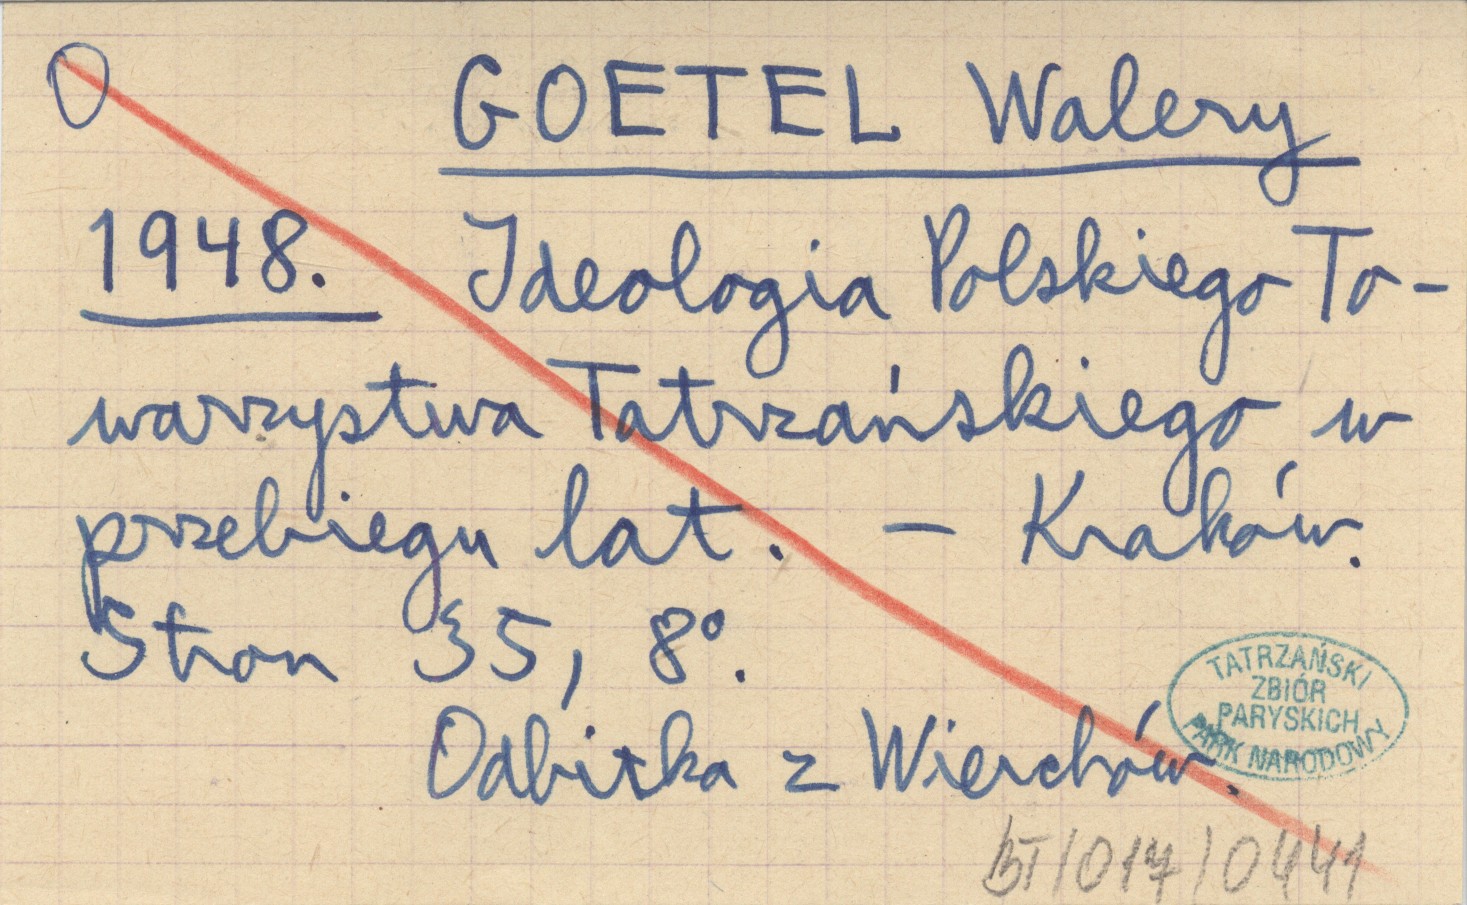 O
GOETEL Walery
1948. Ideologia Polskiego To-
warzystwa Tatrzańskiego w
przebiegu lat. – Kraków.
Stron 35, 8°.
Odbitka z Wierchów.
TATRZAŃSKI
ZBIÓR
PARYSKICH
PARK NARODOWY
BT/017/0441